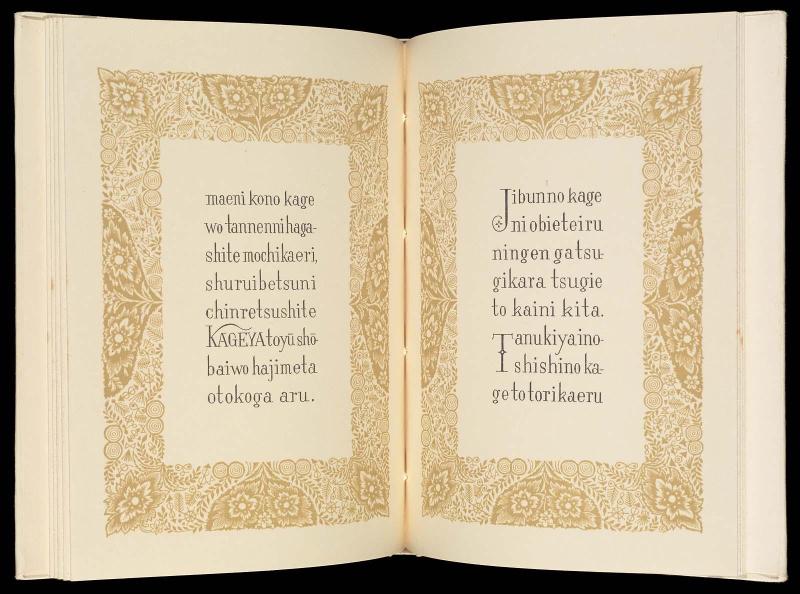 maeni kono kage
wo tannenni haga-
shite mochikaeri,
shuruibetsuni
chinretsushite
KAGEYA toyū shō-
baiwo hajimeta
otokoga aru.
Jibunno kage
ni obieteiru
ningen gatsu-
gikara tsugie
to kaini kita.
Tanukiya ino-
shishino ka-
geto torikaeru